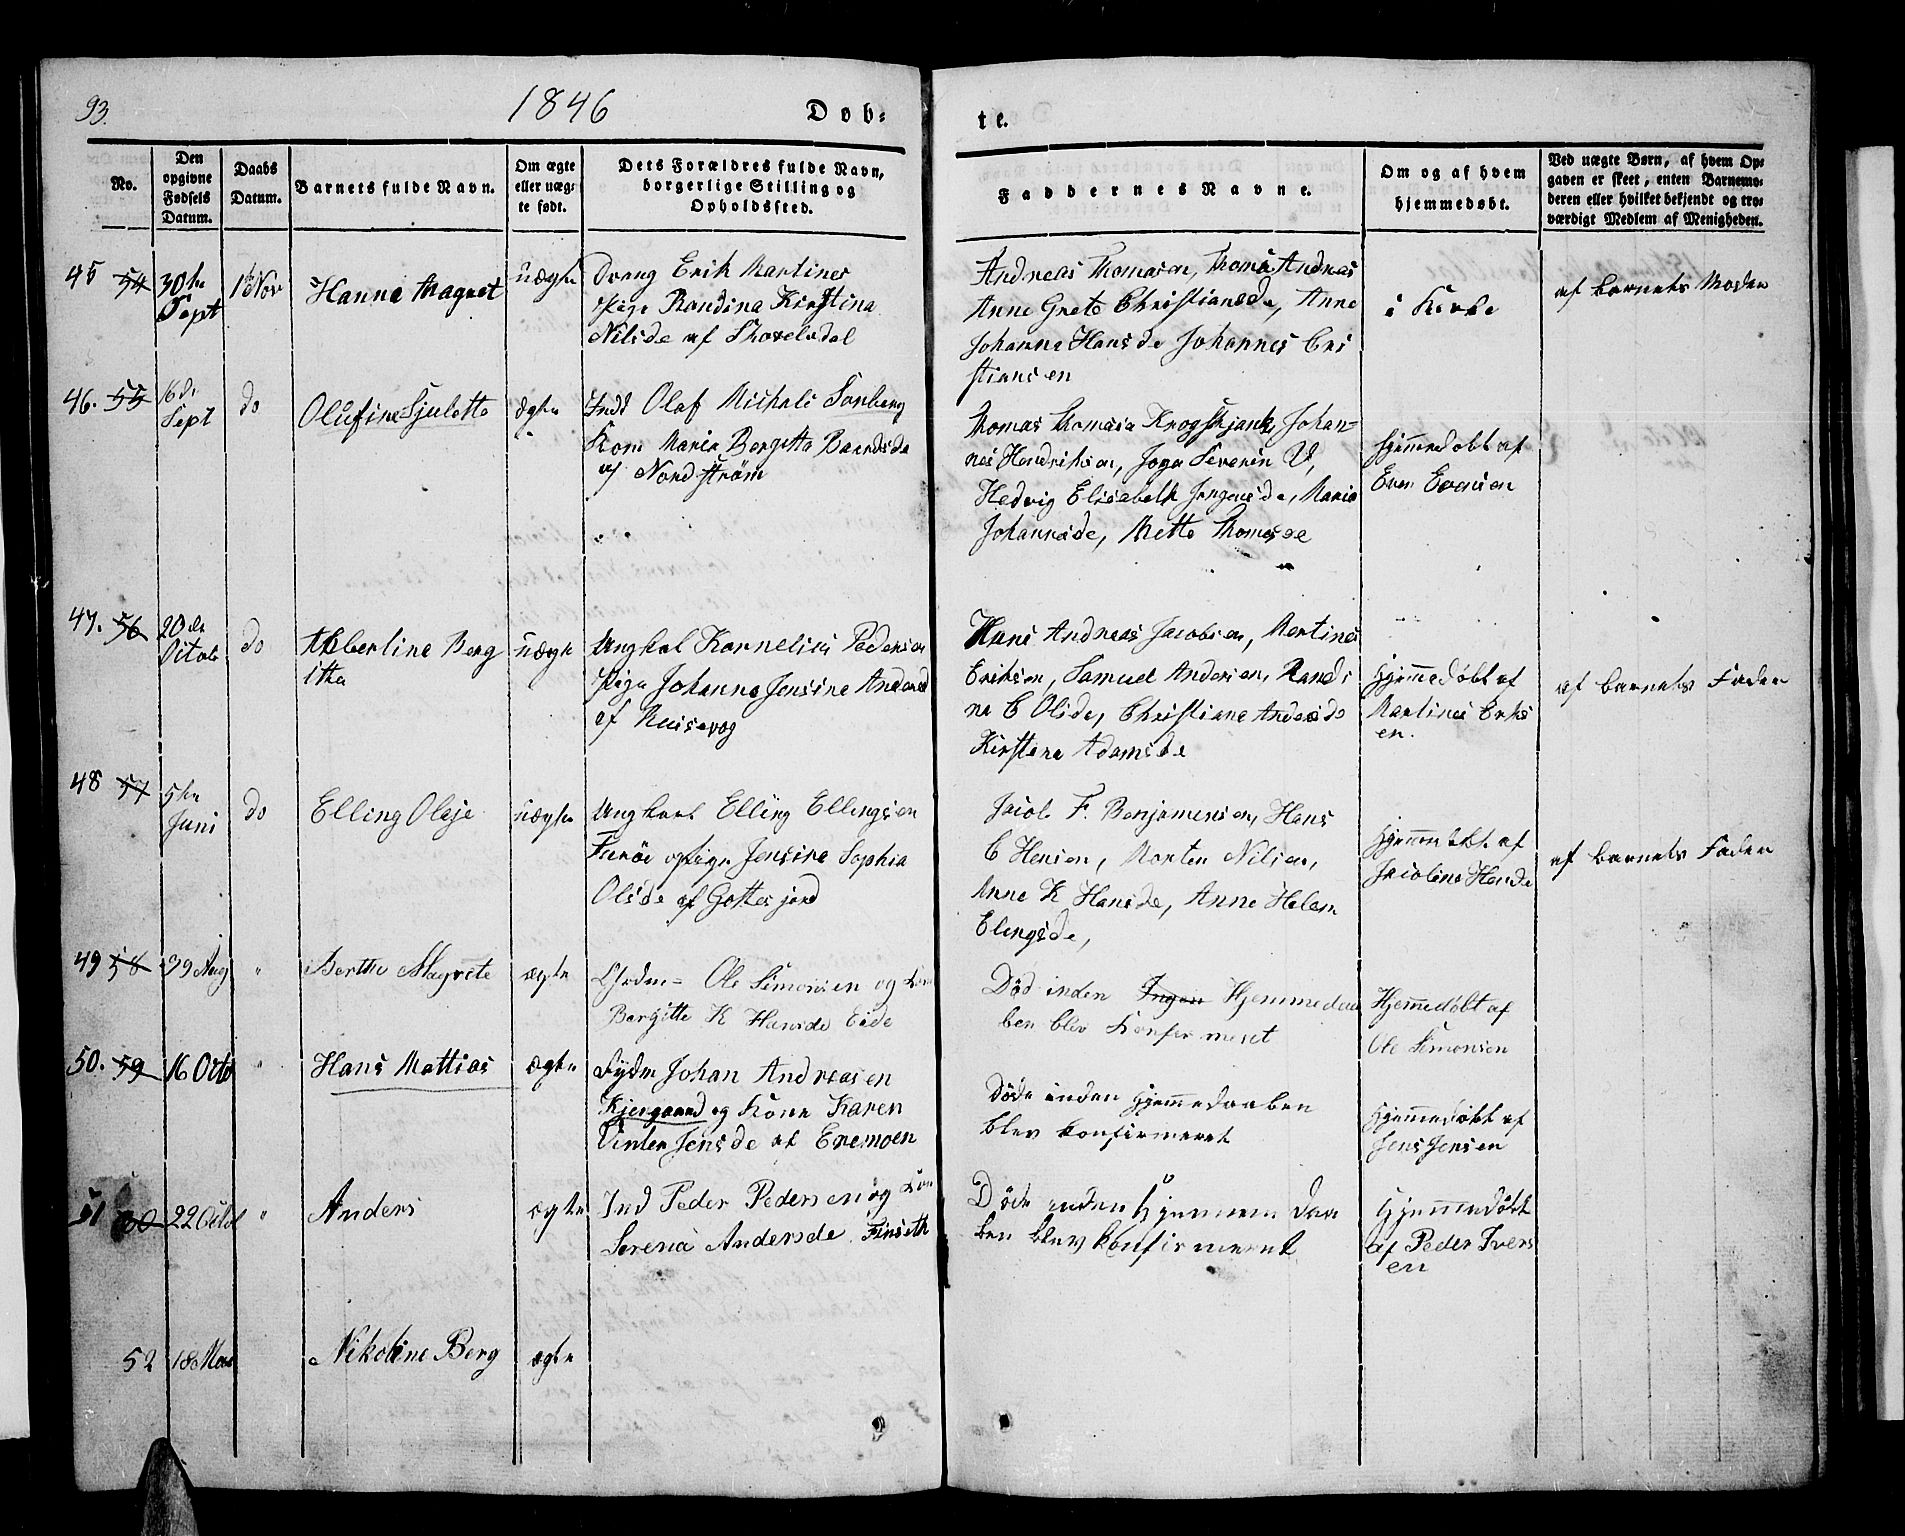 93.
1846
Døb-
te.
No.
Den opgivne Fødsels Datum.
Daabs Datum.
Barnets fulde Navn.
Om ægte eller uægte født.
Dets Forældres fulde Navn, borgerlige Stilling og Opholdssted.
Faddernes Navne.
Om og af hvem hjemmedøbt.
Ved uægte Børn, af hvem Opgaven er skeet, enten Barnemoderen eller hvilket bekjendt og troværdigt Medlem af Menigheden.
45 54
30te Sept
1ste Nov
Hanna Magret
uægte
Dreng Erik Martines
Pige Randina Kirstina
Nilsde af Skovelvdal
Andreas Thomasen, Thoms Andreas
Anne Grete Christiansde, Anne
Johanna Hansde Johannes Cri
stiansen
i Kirke
af barnets Moder
46. 55
16de Sept
do
Olufine Sjulotte
ægte
Indt Olaf Michali Sonberg
Kone Maria Bergitta Baardsde
af Nordstrøm
Thomas Thomasa Krogskjank, Johan-
nes Hendriksen, Joga Severin U,
Hedvig Elisabeth Jørgensde, Maria
Johannsde, Mette Thomasde
Hjemmedøbt af
Even Evensen
47. 56
20de Octob
do
Abberline Berg
itha
uægte
Ungkal Kornelius Pedersen
Pige Johanna Jensine Andersd
af Reisevog
Hans Andreas Jacobsen, Martines
Eriksen, Samuel Andersen, Randi
na C Olsde, Christiane Andersde
Kirstene Adamsde
Hjemmedøbt af
Martines Eriks
en.
af barnets Fader
48 57
5te Juni
do
Elling Oleje
uægte
Ungkarl Elling Ellingsen
Furöe Pige Jensine Sophia
Olsde af Gottesjord
Jacob F. Benjaminsen, Hans
C Hensen, Morten Nilsen,
Anne K Hansde, Anne Helen
Elingsde,
Hjemmedøbt af
Jacobine Hansde
af barnets Fader
49 58
29 Aug
"
Berthe Magrete
ægte
Grdm= Ole Simonsen og Kone
Bergitte K Hansde Eide
Død inden Ingen Hjemmedaa
ben blev Konfirmeret
Hjemmedøbt af
Ole Simonsen
50. 59
16 Octo
"
Hans Mattias
ægte
Johan Andreasen
Kjergaard og Kone Karen
Vinter Jensde af Enemoen
Döde inden Hjemmedaaben
blev konfirmeret
Hjemmedøbt af
Jens Jensen
51 60
22 Octob
"
Anders
ægte
Ind Peder Pedersen og Kone
Serena Andersde Finseth
Döde inden Hjemmem daa
ben blev konfirmeret
Hjemmedöbt
af Peder Ivers
en
52
18 Mai
Nikoline Berg
ægte